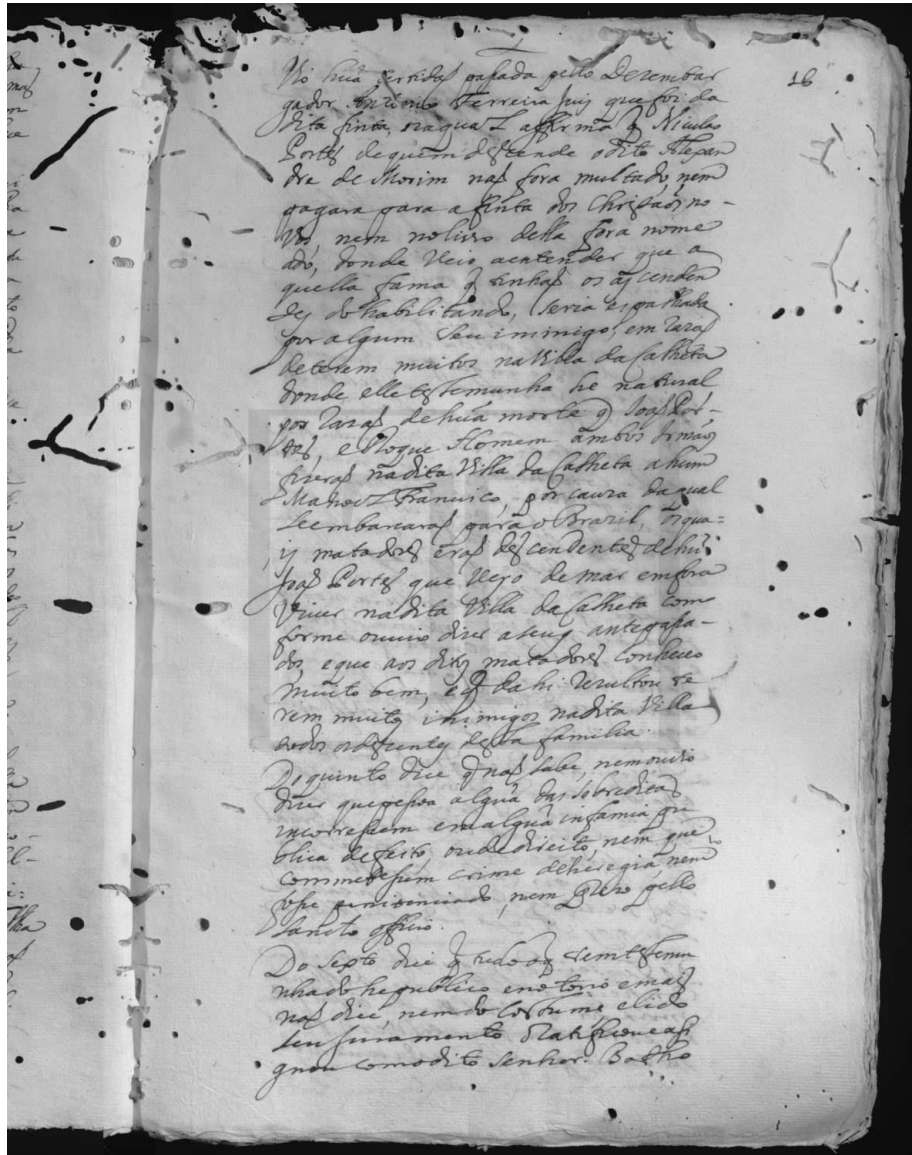 16
Vio huã certidaõ pasada pello Dezembar
gador Antonio Ferreira Juiz que foi da
dita finta, na qual affirma q̃ Nicolao
Portes de quem descende o dito Alexan
dre de Morim naõ fora multado, nem
pagara para a finta dos Christaõs no-
vos, nem no livro della fora nome
ado, donde veio a entender que a
quella fama q̃ tinhaõ os ascenden
tes do habilitando, seria espalhada
por algum seu inimigo, em razaõ
de terem muitos na Villa da Calheta
donde elle testemunha he natural
por razaõ de huã morte q̃ Joaõ Por-
tes, e Roque Homem ambos Irmaõs
fizeraõ na dita Villa da Calheta a hum
Manoel Francisco, por cauza da qual
se embarcaraõ para o Brazil, os qua=
is matadores eraõ descendentes de hũ
Joaõ Portes que veyo de mar em fora
viver na dita Villa da Calheta com
forme ouvio dizer a seus antepasa-
dos, e que aos ditos matadores conheceo
muito bem, e q̃ dahi rezultou te
rem muitos inimigos na dita Villa
todos os descendentes desta familia.
Do quinto dice q̃ naõ sabe, nem ouvio
dizer que pesoa alguã das sobreditas
incorresem em alguã infamia pu
blica de feito, ou de direito, nem que
commetesem crime de heregia nem
fose penitenciado, nem prezo pello
Sancto officio.
Do sexto dice q̃ tudo o q̃ tem testemu
nhado he publico e notorio e mais
naõ dice, nem do costume e lido
seu juramento o ratificou e asi
gnou com o dito Senhor. Botho